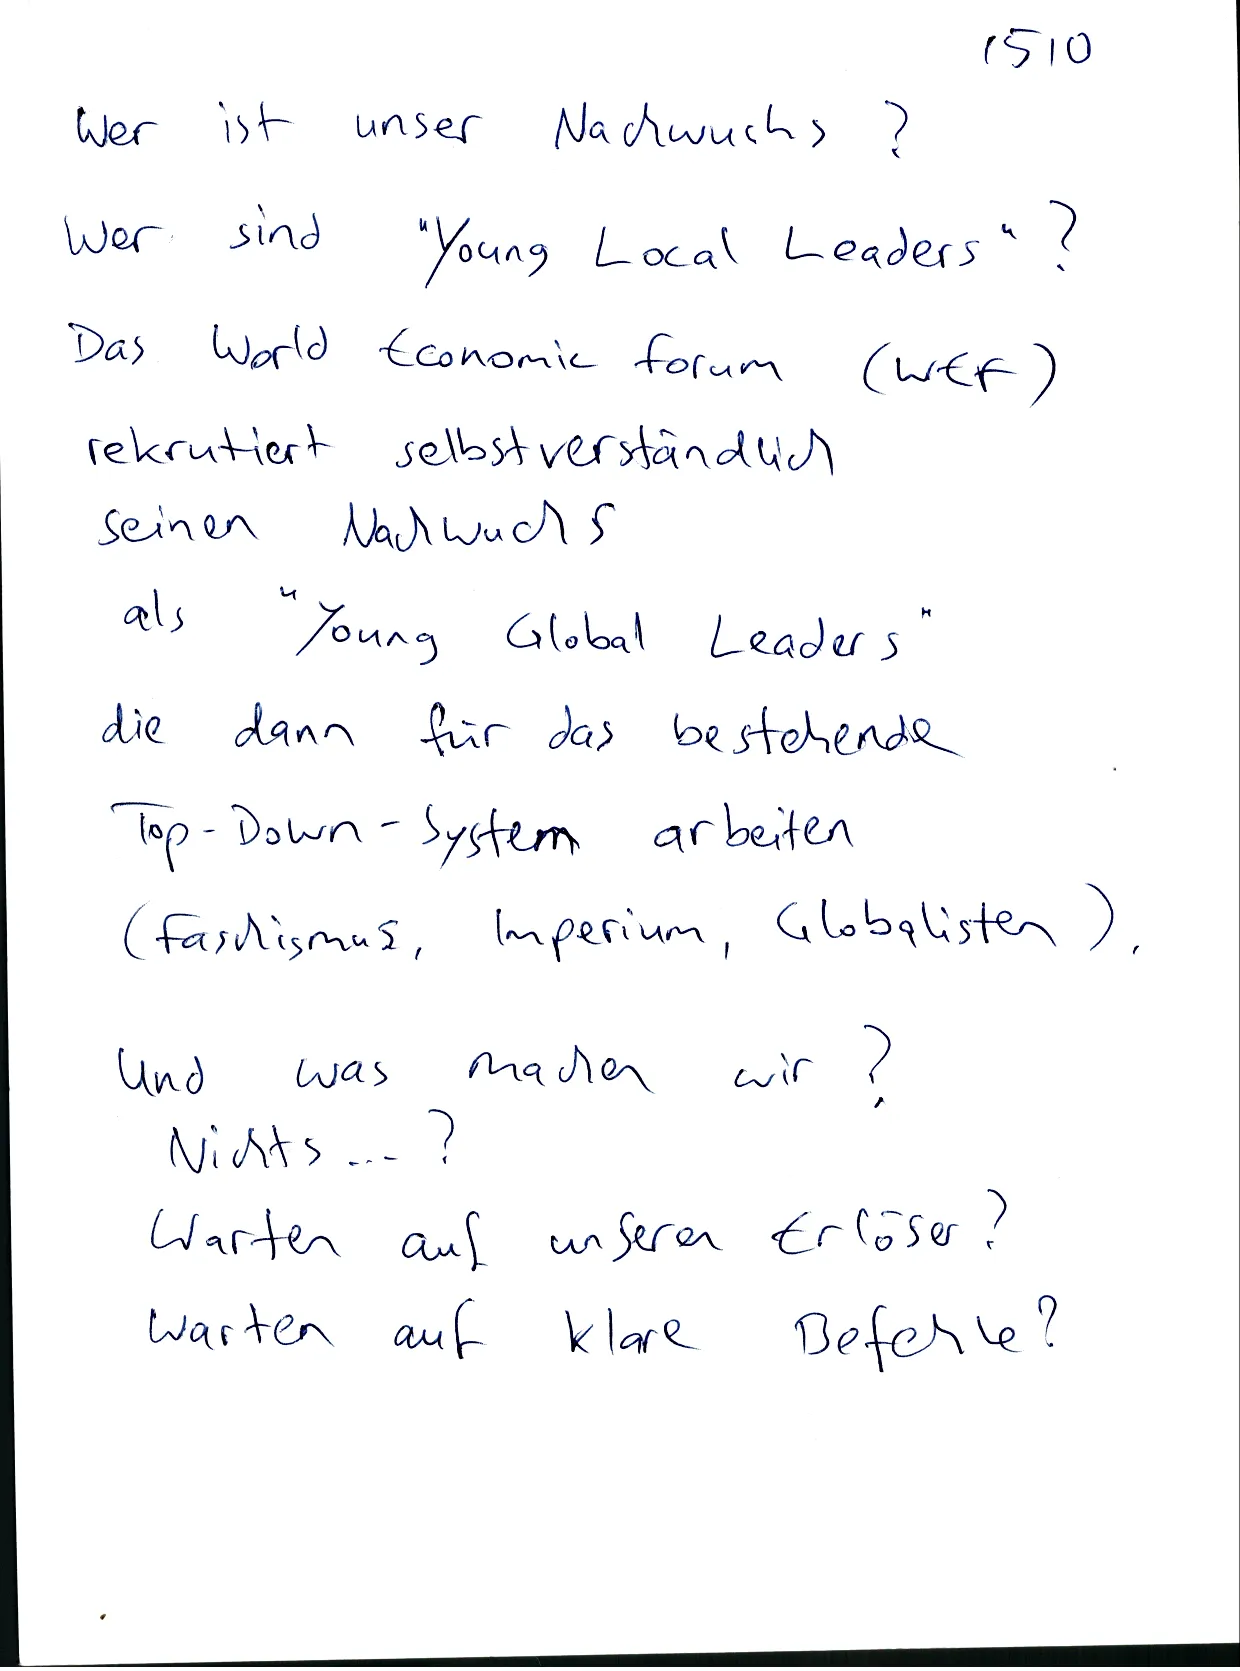 1510
Wer ist unser Nachwuchs?
Wer sind "Young Local Leaders"?
Das World Economic Forum (WEF)
rekrutiert selbstverständlich
seinen Nachwuchs
als "Young Global Leaders"
die dann für das bestehende
Top-Down-System arbeiten
(Faschismus, Imperium, Globalisten).
Und was machen wir?
Nichts...?
Warten auf unseren Erlöser?
Warten auf klare Befehle?